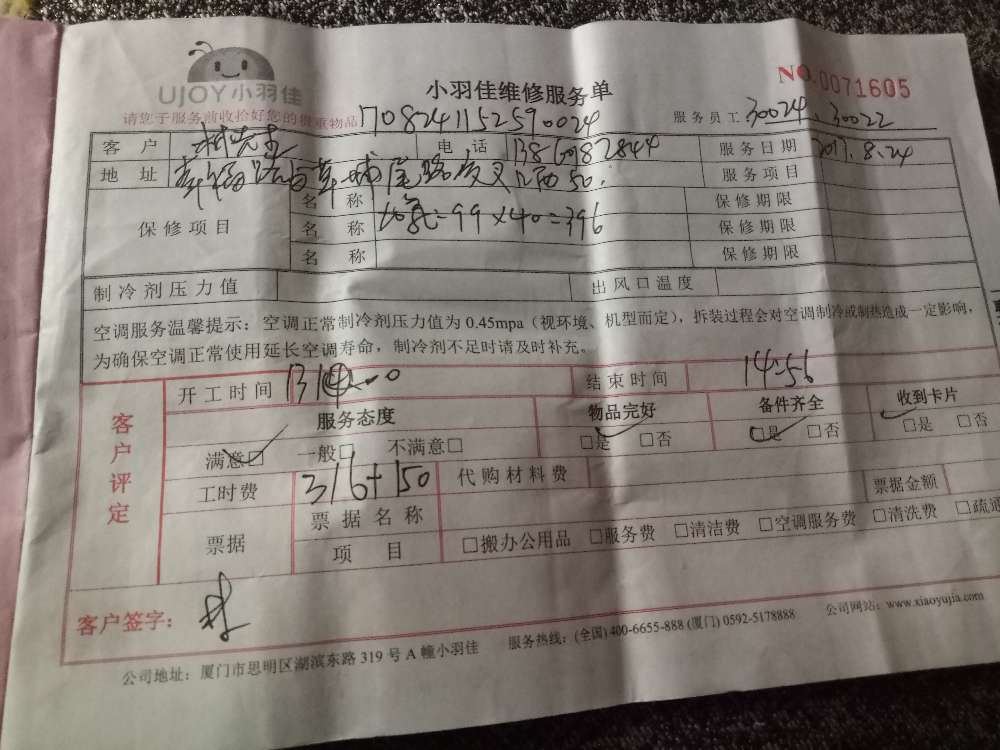 UJOY小羽佳
小羽佳维修服务单
NO.0071605
请您于服务前收拾好您的贵重物品 1708241152590024
服务员工 30024、30022
客户 林先生 电话 服务日期 2017.8.24
地址 服务项目
保修项目 名称 保修期限
名称 加氟=99×40=396 保修期限
名称 保修期限
制冷剂压力值 出风口温度
空调服务温馨提示：空调正常制冷剂压力值为0.45mpa（视环境、机型而定），拆装过程会对空调制冷或制热造成一定影响，
为确保空调正常使用延长空调寿命，制冷剂不足时请及时补充。
客户评定
开工时间 结束时间 14:56
服务态度 物品完好 备件齐全 收到卡片
满意□ 一般□ 不满意□ □是 □否 □是 □否 □是 □否
工时费 316+150 代购材料费 票据金额
票据 票据名称
项目 □搬办公用品 □服务费 □清洁费 □空调服务费 □清洗费 □疏通
客户签字： 林
公司地址：厦门市思明区湖滨东路319号A幢小羽佳 服务热线：(全国)400-6655-888 (厦门) 0592-5178888 公司网站：www.xiaoyujia.com